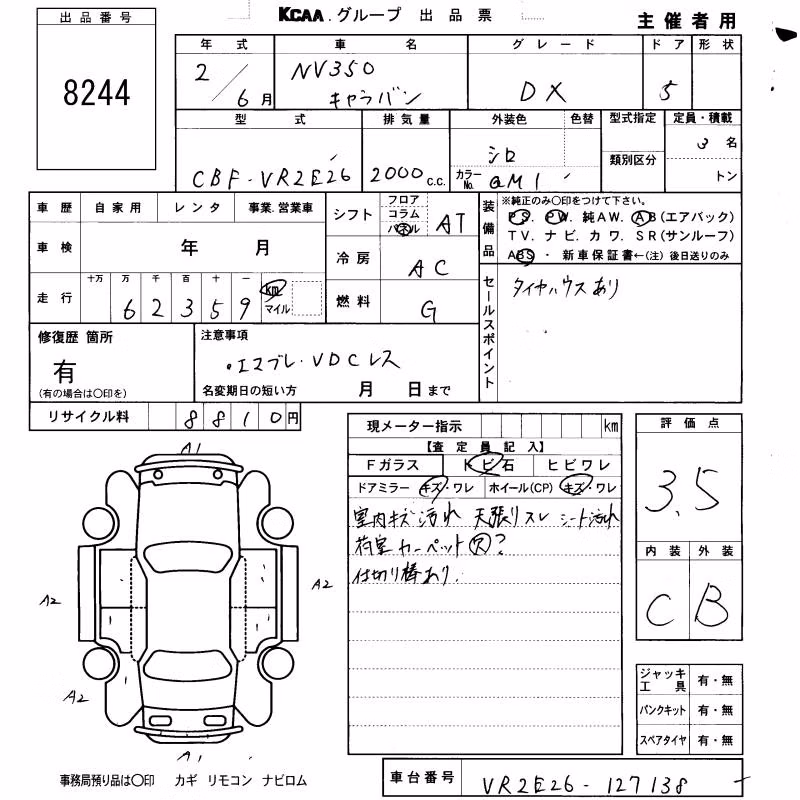 KCAA.グループ 出品票
主催者用
出品番号
8244
年式 車名 グレード ドア 形状
2/6月 NV350 キャラバン DX 5
型式 排気量 外装色 色替 型式指定 定員・積載
CBF-VR2E26 2000 C.C. シロ カラーNo. QM1 類別区分 3名
トン
車歴 自家用 レンタ 事業.営業車
シフト フロア コラム パネル AT
装備品 ※純正のみ〇印をつけて下さい。
PS. PW. 純AW. AB(エアバッグ)
TV. ナビ. カワ. SR(サンルーフ)
ABS ・ 新車保証書←(注) 後日送りのみ
車検 年 月
冷房 AC
走行 十万 万 千 百 十 一
6 2 3 5 9 km マイル
燃料 G
セールスポイント タイヤハウスあり
修復歴 箇所
有
(有の場合は〇印を)
注意事項
・エマブレ・VDCレス
名変期日の短い方 月 日まで
リサイクル料 8 8 1 0 円
現メーター指示 km
【査定員記入】
Fガラス トビ石 ヒビワレ
ドアミラー キズ・ワレ ホイール(CP) キズ・ワレ
室内キズ汚れ 天張りスレ シート汚れ
荷室カーペット穴?
仕切り棒あり.
評価点
3.5
内装 外装
C B
A1
A2 A2
A2
A1
ジャッキ工具 有・無
パンクキット 有・無
スペアタイヤ 有・無
事務局預り品は〇印 カギ リモコン ナビロム
車台番号 VR2E26-127138